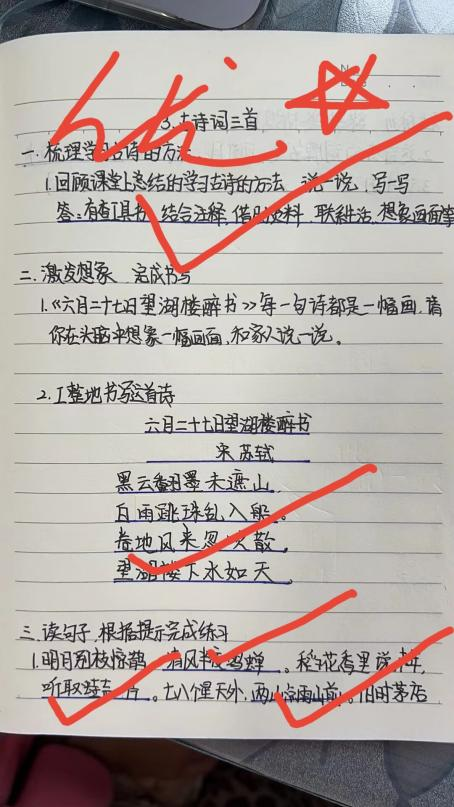 优
N
3.古诗词三首
一.梳理学习古诗的方法
1.回顾课堂上总结的学习古诗的方法 说一说,写一写
答:有查工具书,结合注释,借助资料,联系生活,想象画面等
二.激发想象 完成书写
1.《六月二十七日望湖楼醉书》每一句诗都是一幅画,请
你在头脑中想象一幅画面,和家人说一说。
2.工整地书写这首诗
六月二十七日望湖楼醉书
宋 苏轼
黑云翻墨未遮山
白雨跳珠乱入船。
卷地风来忽吹散,
望湖楼下水如天。
三.读句子,根据提示完成练习
1.明月别枝惊鹊 清风半夜鸣蝉。稻花香里说丰年,
听取蛙声一片。七八个星天外,两山前。旧时茅店